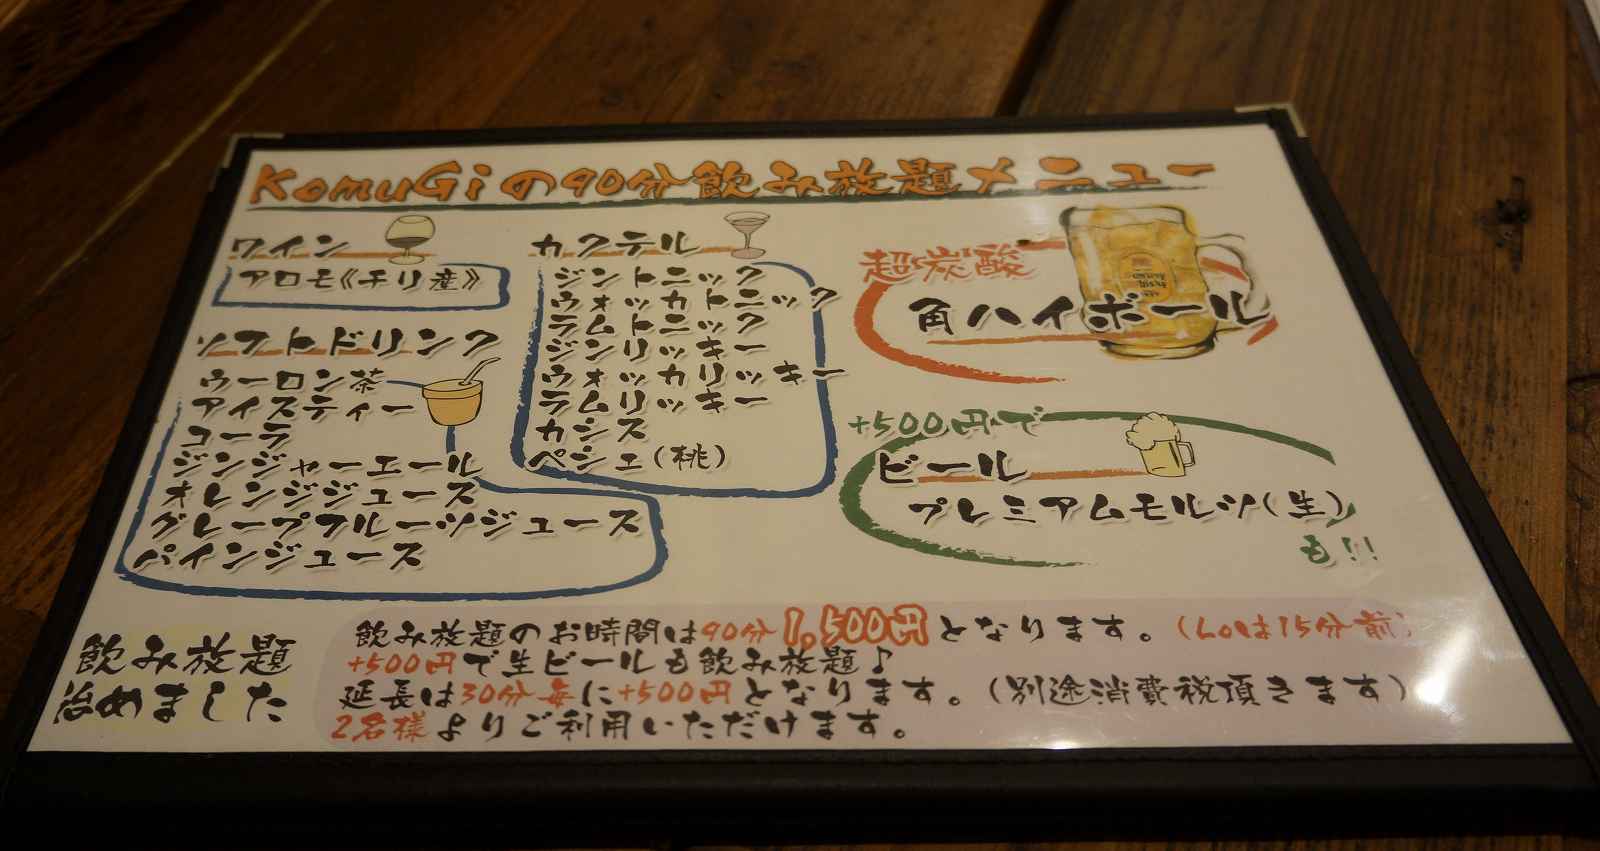 KomuGiの90分飲み放題メニュー
ワイン
アロモ《チリ産》
ソフトドリンク
ウーロン茶
アイスティー
コーラ
ジンジャーエール
オレンジジュース
グレープフルーツジュース
パインジュース
カクテル
ジントニック
ウォッカトニック
ラムトニック
ジンリッキー
ウォッカリッキー
ラムリッキー
カシス
ペシェ(桃)
超炭酸
角ハイボール
+500円で
ビール
プレミアムモルツ(生)
も!!!
飲み放題
治めました
飲み放題のお時間は90分1,500円となります。(LOは15分前)
+500円で生ビールも飲み放題♪
延長は30分毎に+500円となります。(別途消費税頂きます)
2名様よりご利用いただけます。